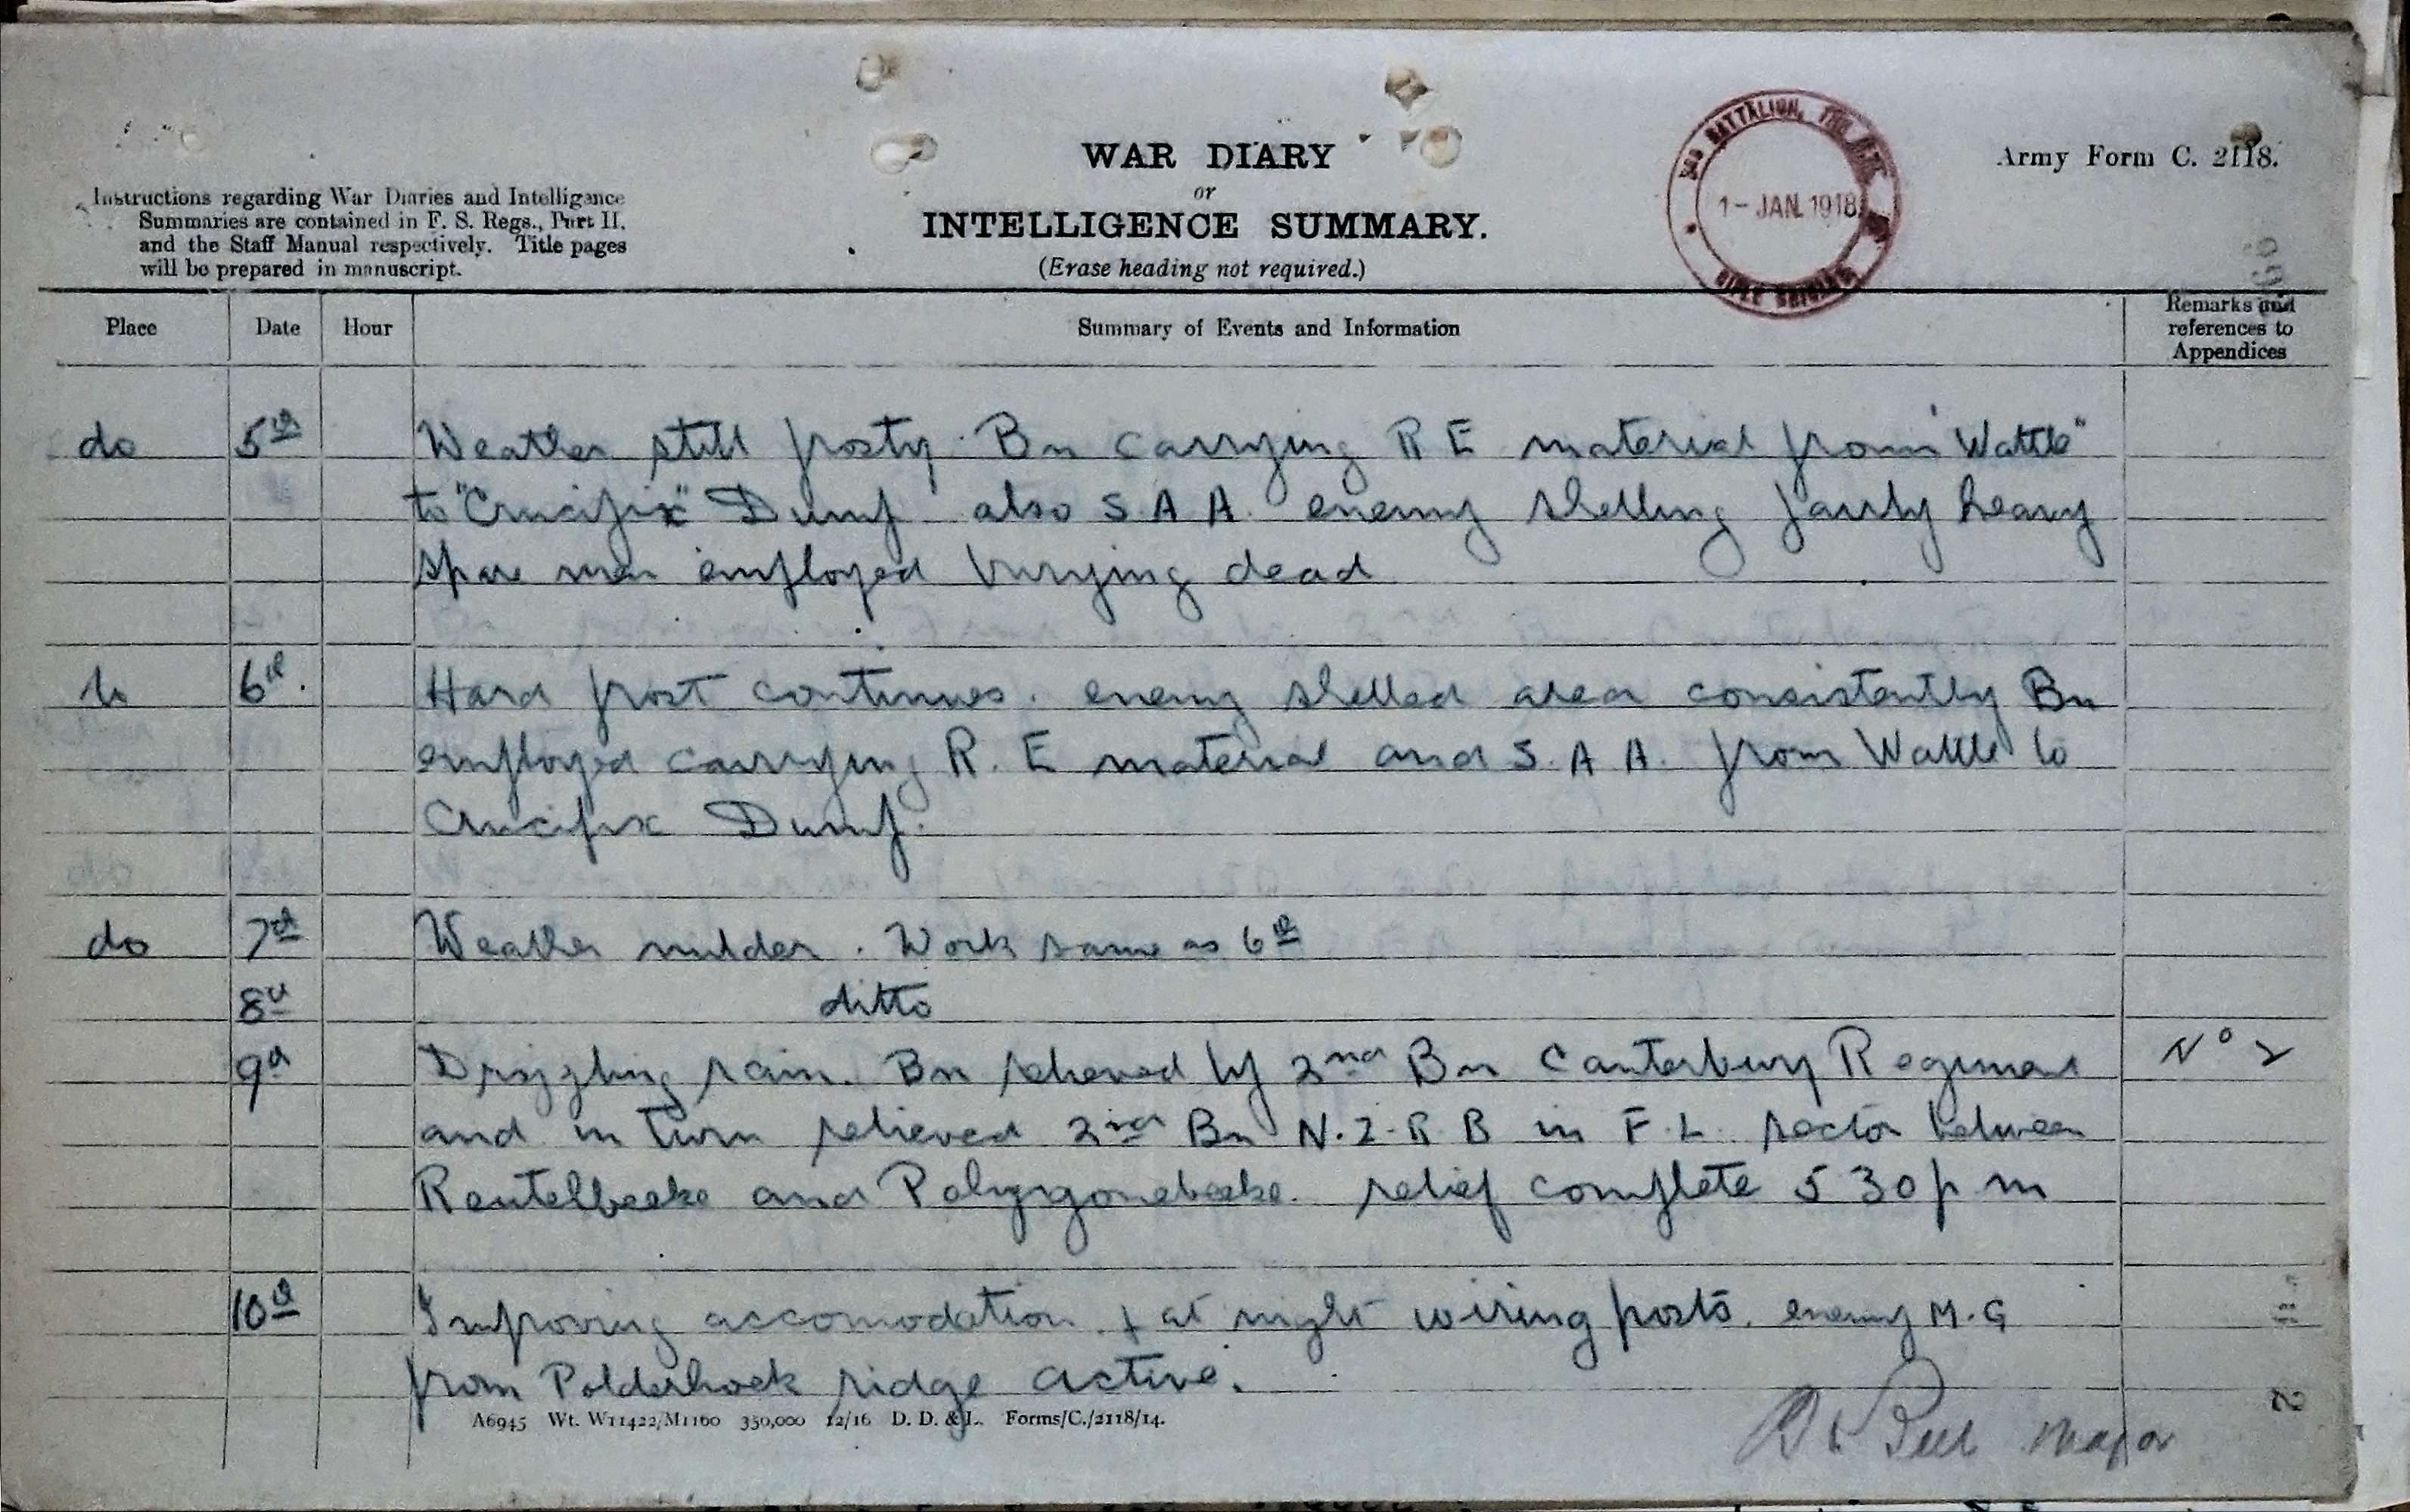 WAR DIARY
or
INTELLIGENCE SUMMARY.
(Erase heading not required.)
Army Form C. 2118.
Instructions regarding War Diaries and Intelligence
Summaries are contained in F. S. Regs., Part II.
and the Staff Manual respectively. Title pages
will be prepared in manuscript.
BATTALION, THE
1 - JAN. 1918
RIFLE BRIGADE
Place Date Hour Summary of Events and Information Remarks and references to Appendices
do 5th Weather still frosty. Bn carrying R E material from "Wattle"
to "Crucifix" Dump also S A A. enemy shelling fairly heavy
spare men employed burying dead
do 6th. Hard frost continues. enemy shelled area consistently Bn
employed carrying R. E material and S. A A. from Wattle to
Crucifix Dump.
do 7th Weather milder. Work same as 6th
8th ditto
9th Drizzling rain. Bn relieved by 2nd Bn Canterbury Regiment No 2
and in turn relieved 2nd Bn N.Z.R B in F.L. sector between
Reutelbeeke and Polygonebeeke. relief complete 5 30 p m
10th Improving accomodation & at night wiring posts. enemy M.G
from Polderhoek ridge active.
A6945 Wt. W11422/M1160 350,000 12/16 D. D. & L. Forms/C./2118/14.
Major
2